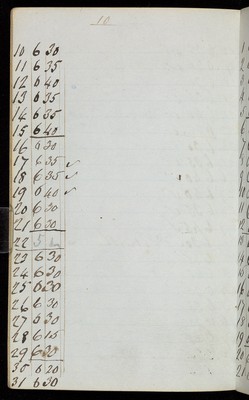 10
10 6 30
11 6 35
12 6 40
13 6 35
14 6 35
15 6 40
16 6 30
17 6 35 ✓
18 6 35 ✓
19 6 40 ✓
20 6 30
21 6 30
22 5
23 6 30
24 6 30
25 6 30
26 6 30
27 6 30
28 6 15
29 6 30
30 6 20
31 6 30